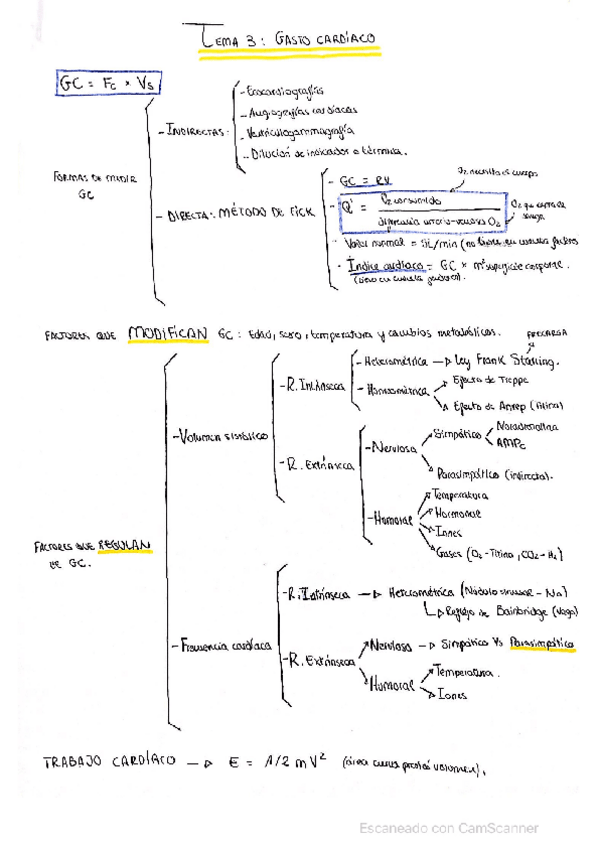 TEMA 3: GASTO CARDÍACO
GC = Fc × Vs
FORMAS DE MEDIR GC
- INDIRECTAS:
- Ecocardiografías
- Angiografías cardíacas
- Ventriculogammagrafía
- Dilución de indicador o térmica.
- DIRECTA: MÉTODO DE FICK
- GC = RV
O2 necesita el cuerpo
- Q = O2 consumido / diferencia arterio-venosa O2
O2 que capta de sangre
- Valor normal = 5L/min (no tiene en cuenta factores
- Índice cardíaco = GC × m² superficie corporal.
FACTORES QUE MODIFICAN GC: Edad, sexo, temperatura y cambios metabólicos.
PRECARGA
FACTORES QUE REGULAN GC.
- Volumen sistólico
- R. Intrínseca
- Heterométrica → Ley Frank Starling.
- Homeométrica
Efecto de Treppe
Efecto de Anrep
- R. Extrínseca
- Nerviosa
Simpático
Noradrenalina
AMPc
Parasimpático (indirecta).
- Humoral
Temperatura
Hormonal
Iones
Gases
- Frecuencia cardíaca
- R. Intrínseca → Heterométrica (Nódulo sinusal - Na)
Reflejo de Bainbridge (Vago)
- R. Extrínseca
Nerviosa → Simpático Vs Parasimpático
Humoral
Temperatura.
Iones
TRABAJO CARDÍACO → E = 1/2 m V² (área curva presión volumen).
Escaneado con CamScanner